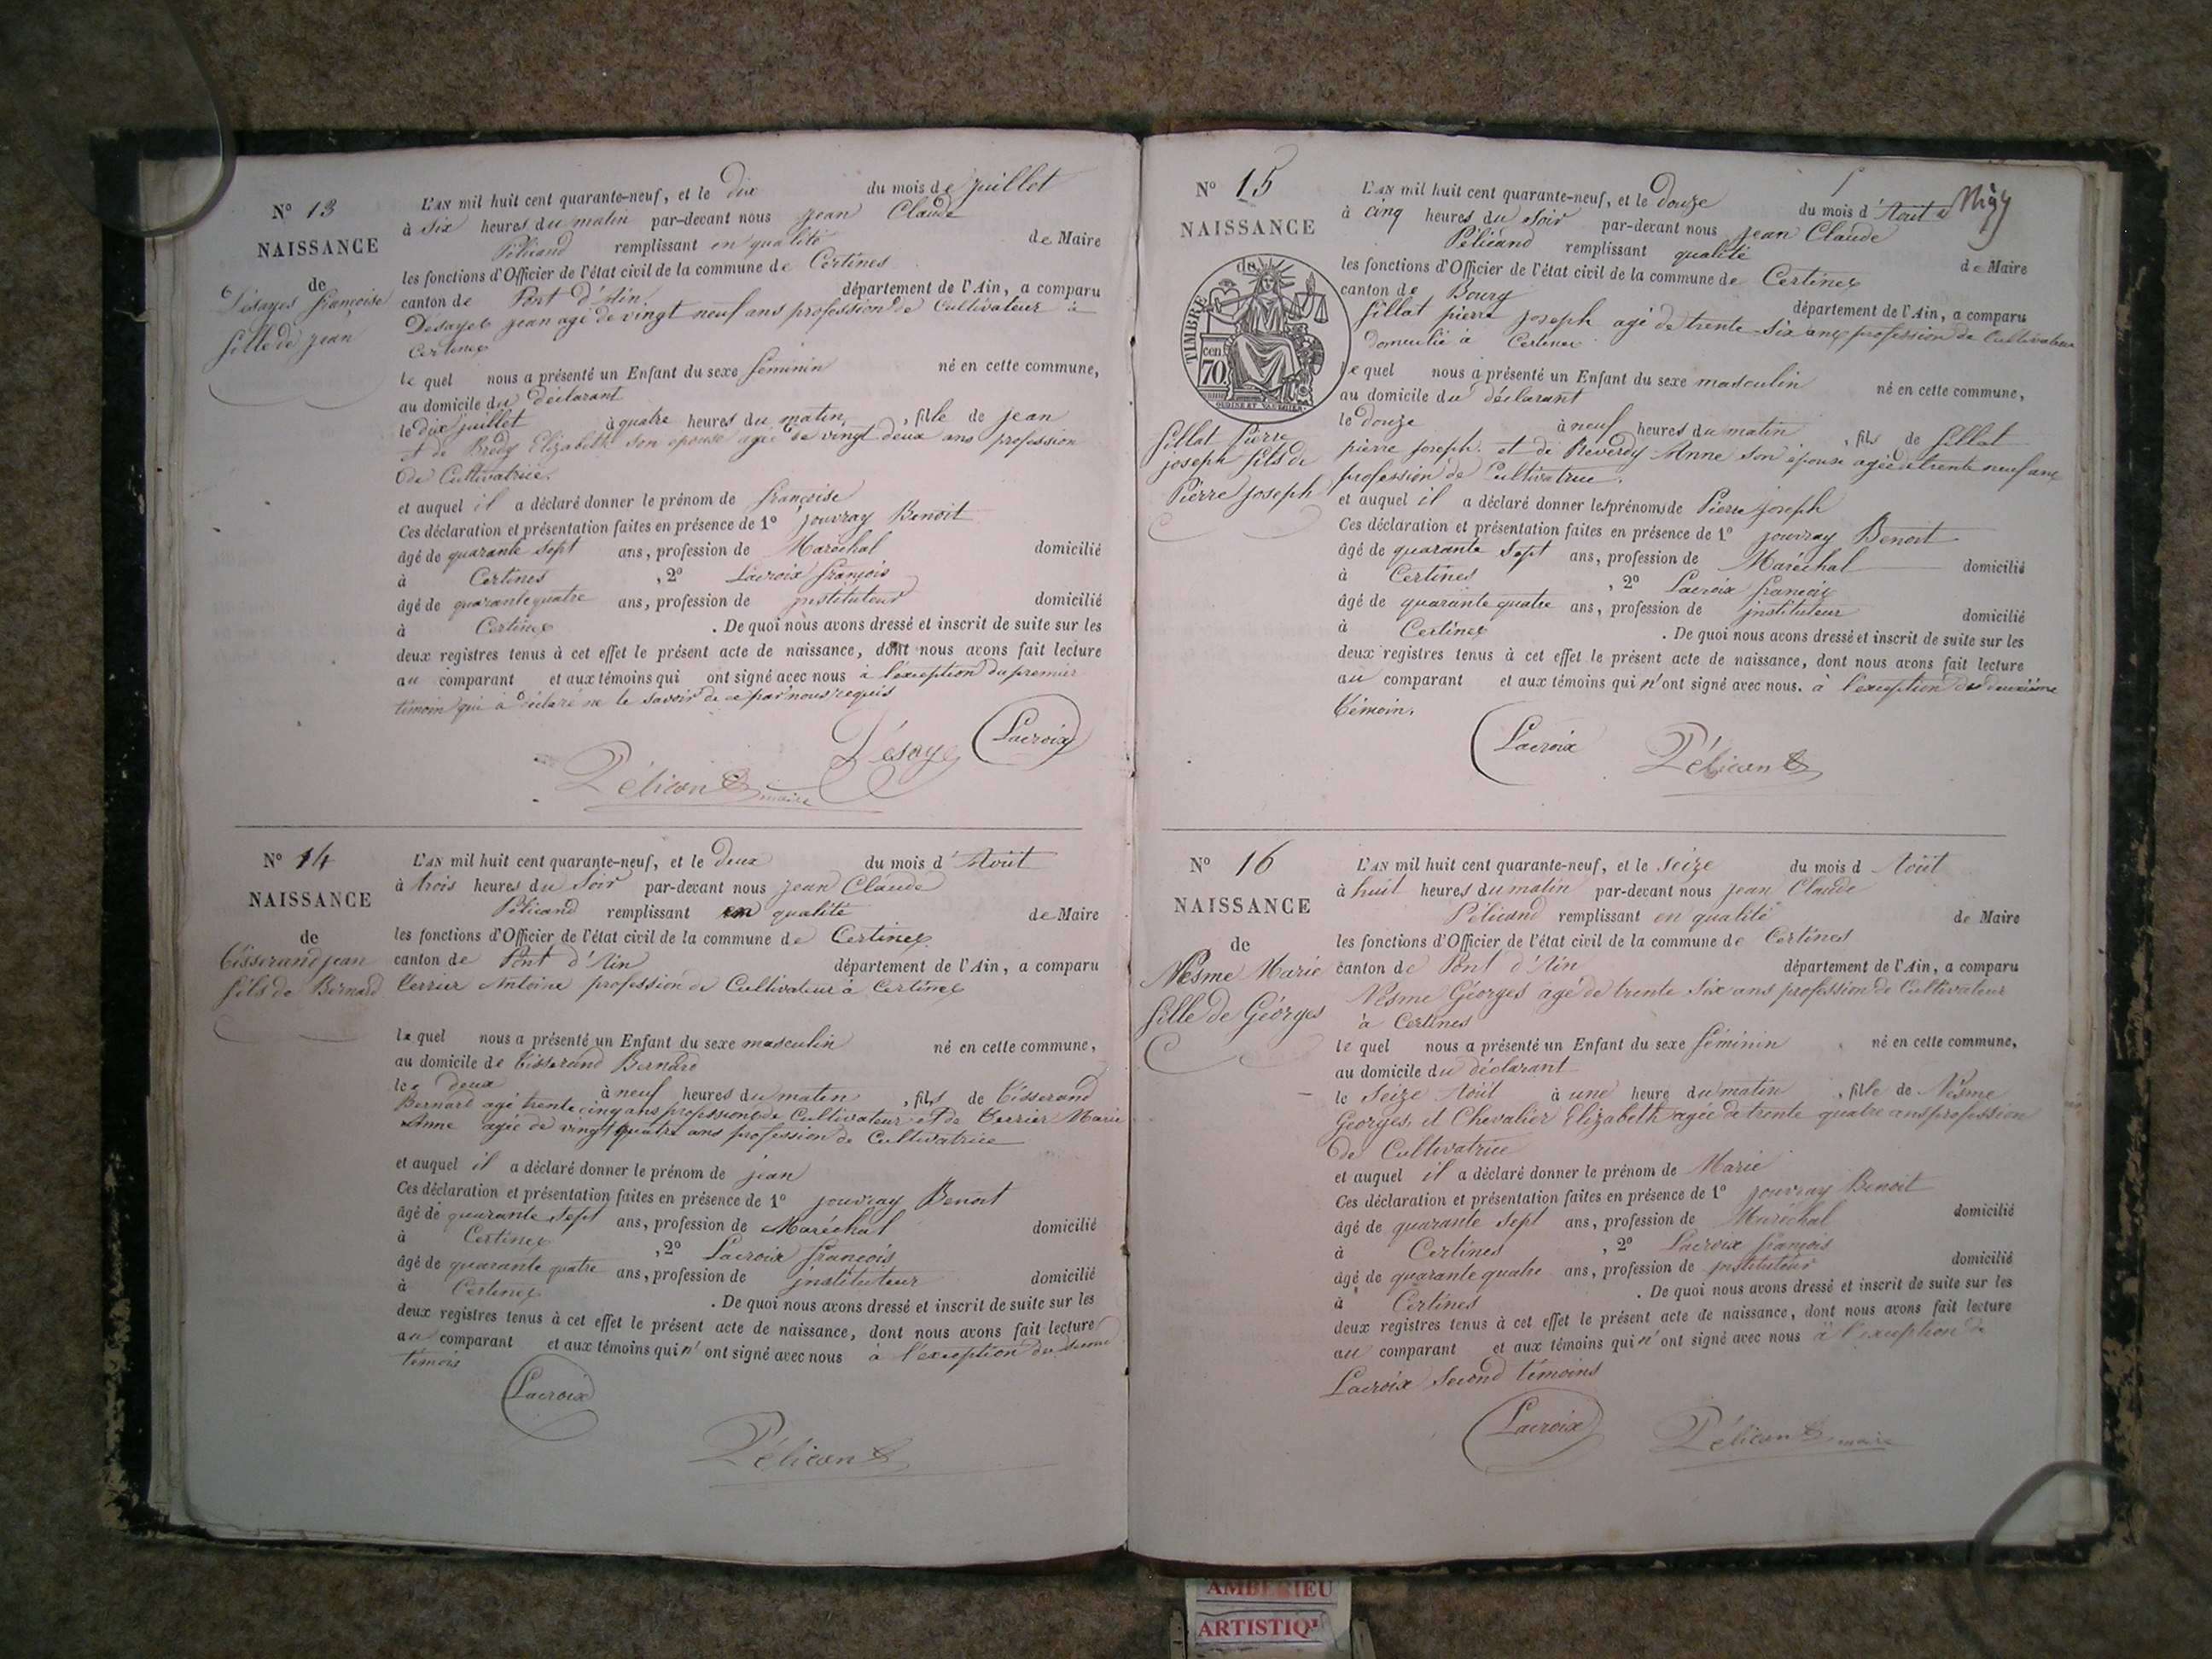 N° 13
NAISSANCE
de
Désayes françoise
fille de jean
L'AN mil huit cent quarante-neuf, et le dix du mois de juillet
à six heures du matin par-devant nous jean Claude
Pélicand remplissant en qualité de Maire
les fonctions d'Officier de l'état civil de la commune de Certines
canton de Pont d'Ain département de l'Ain, a comparu
Désayes jean agé de vingt neuf ans profession de Cultivateur à
Certines
le quel nous a présenté un Enfant du sexe féminin né en cette commune,
au domicile du déclarant
le dix juillet à quatre heures du matin, fille de jean
et de Brédy Elizabeth son épouse agée de vingt deux ans profession
de Cultivatrice.
et auquel il a déclaré donner le prénom de françoise
Ces déclaration et présentation faites en présence de 1° jouvray Benoit
âgé de quarante sept ans, profession de Maréchal domicilié
à Certines, 2° Lacroix françois
âgé de quarante quatre ans, profession de instituteur domicilié
à Certines. De quoi nous avons dressé et inscrit de suite sur les
deux registres tenus à cet effet le présent acte de naissance, dont nous avons fait lecture
au comparant et aux témoins qui ont signé avec nous à l'exception du premier
témoin qui à déclaré ne le savoir de ce par nous requis
Désayes Lacroix
Pélicand maire
N° 14
NAISSANCE
de
Tisserand jean
fils de Bernard
L'AN mil huit cent quarante-neuf, et le deux du mois d'Août
à trois heures du soir par-devant nous jean Claude
Pélicand remplissant en qualité de Maire
les fonctions d'Officier de l'état civil de la commune de Certines
canton de Pont d'Ain département de l'Ain, a comparu
Terrier Antoine profession de Cultivateur à Certines
le quel nous a présenté un Enfant du sexe masculin né en cette commune,
au domicile de Tisserand Bernard
le deux à neuf heures du matin, fils de Tisserand
Bernard agé trente cinq ans profession de Cultivateur et de Terrier Marie
Anne agée de vingt quatre ans profession de Cultivatrice
et auquel il a déclaré donner le prénom de jean
Ces déclaration et présentation faites en présence de 1° jouvray Benoit
âgé de quarante sept ans, profession de Maréchal domicilié
à Certines, 2° Lacroix françois
âgé de quarante quatre ans, profession de instituteur domicilié
à Certines. De quoi nous avons dressé et inscrit de suite sur les
deux registres tenus à cet effet le présent acte de naissance, dont nous avons fait lecture
au comparant et aux témoins qui n'ont signé avec nous à l'exception du
témois
Lacroix
Pélicand
N° 15
NAISSANCE
de
TIMBRE
cen 70
fillat Pierre
joseph fils de
Pierre joseph
L'AN mil huit cent quarante-neuf, et le douze du mois d'Août
à cinq heures du soir par-devant nous jean Claude
Pélicand remplissant qualité de Maire
les fonctions d'Officier de l'état civil de la commune de Certines
canton de Bourg département de l'Ain, a comparu
fillat pierre joseph agé de trente-six ans profession de Cultivateur
domicilié à Certines
le quel nous a présenté un Enfant du sexe masculin né en cette commune,
au domicile du déclarant
le douze à neuf heures du matin, fils de fillat
pierre joseph. et de Reverdy Anne son épouse agée de trente neuf ans
profession de Cultivatrice.
et auquel il a déclaré donner les prénoms de Pierre joseph
Ces déclaration et présentation faites en présence de 1° jouvray Benoit
âgé de quarante sept ans, profession de Maréchal domicilié
à Certines, 2° Lacroix françois
âgé de quarante quatre ans, profession de instituteur domicilié
à Certines. De quoi nous avons dressé et inscrit de suite sur les
deux registres tenus à cet effet le présent acte de naissance, dont nous avons fait lecture
au comparant et aux témoins qui n'ont signé avec nous. à l'exception du deuxième
témoin.
Lacroix Pélicand
N° 16
NAISSANCE
de
Nesme Marie
fille de Géorges
L'AN mil huit cent quarante-neuf, et le seize du mois d Août
à huit heures du matin par-devant nous jean Claude
Pélicand remplissant en qualité de Maire
les fonctions d'Officier de l'état civil de la commune de Certines
canton de Pont d'Ain département de l'Ain, a comparu
Nesme Géorges agé de trente six ans profession de Cultivateur
à Certines
le quel nous a présenté un Enfant du sexe féminin né en cette commune,
au domicile du déclarant
le Seize Août à une heure du matin, fille de Nésme
Géorges, et Chevalier Elizabeth agée de trente quatre ans profession
de Cultivatrice
et auquel il a déclaré donner le prénom de Marie
Ces déclaration et présentation faites en présence de 1° jouvray Benoit
âgé de quarante sept ans, profession de Maréchal domicilié
à Certines, 2° Lacroix françois
âgé de quarante quatre ans, profession de instituteur domicilié
à Certines. De quoi nous avons dressé et inscrit de suite sur les
deux registres tenus à cet effet le présent acte de naissance, dont nous avons fait lecture
au comparant et aux témoins qui n'ont signé avec nous à l'exception de
Lacroix second témoins
Lacroix Pélicand maire
AMBERIEU
ARTISTIQ